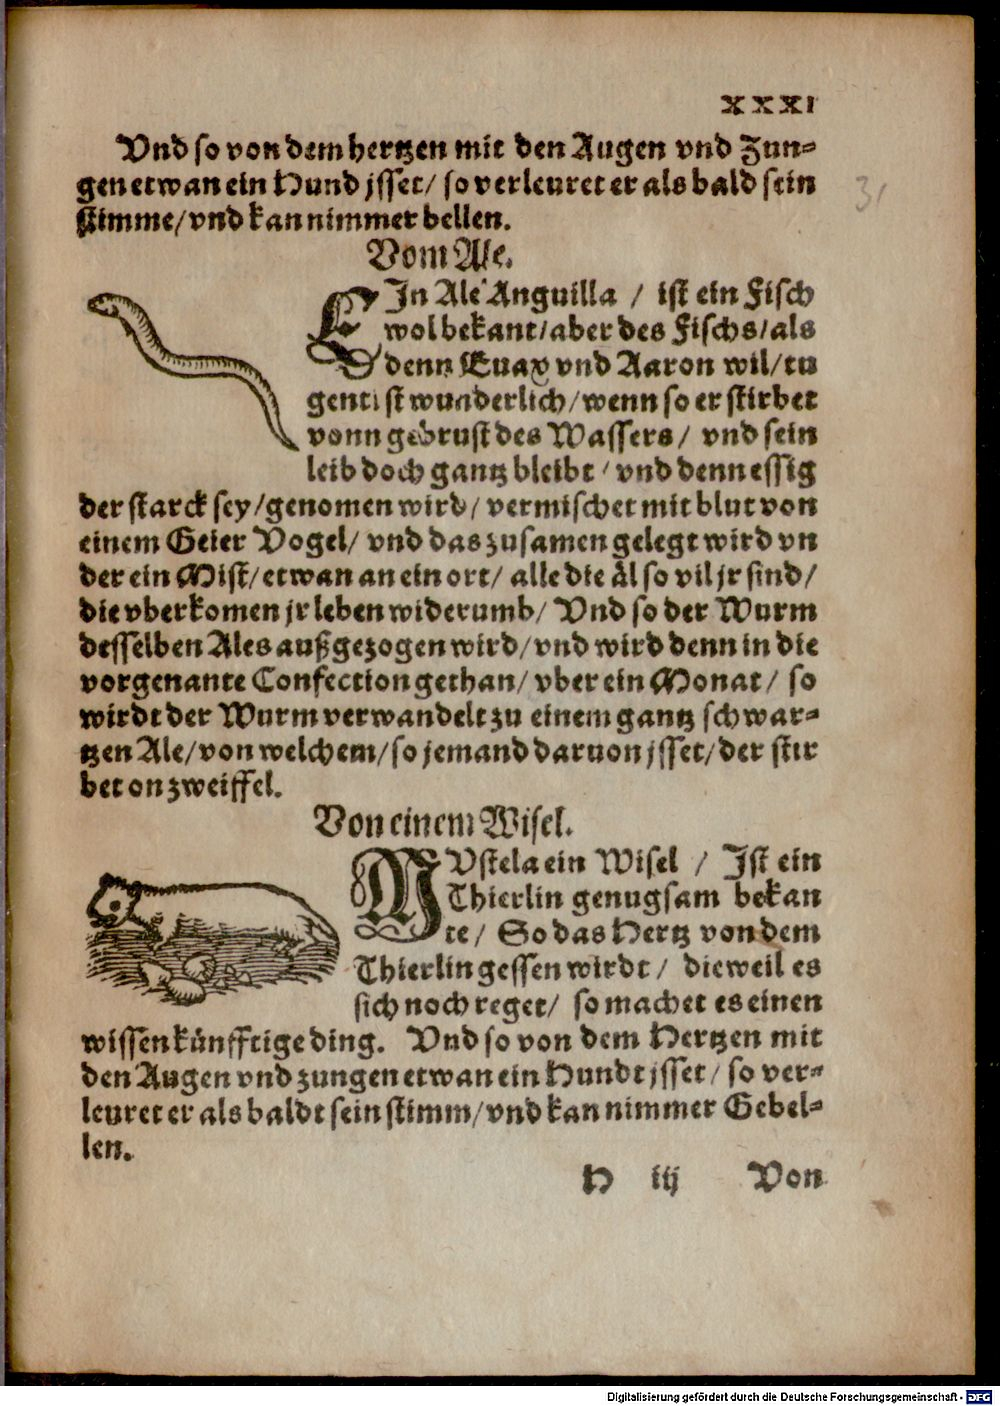 XXXI
Vnd so von dem hertzen mit den Augen vnd Zun-
gen etwan ein Hund jsset/ so verleuret er als bald sein
stimme/ vnd kan nimmer bellen.
31
Vom Ale.
EIn Ale Anguilla / ist ein Fisch
wol bekant/ aber des Fischs/ als
denn Euax vnd Aaron wil/ tu
gent ist wunderlich/ wenn so er stirbet
vonn gebrust des Wassers/ vnd sein
leib doch gantz bleibt/ vnd denn essig
der starck sey/ genomen wird/ vermischet mit blut von
einem Geier Vogel/ vnd das zusamen gelegt wird vn
der ein Mist/ etwan an ein ort/ alle die äl so vil jr sind/
die vberkomen jr leben widerumb/ Vnd so der Wurm
desselben Ales außgezogen wird/ vnd wird denn in die
vorgenante Confection gethan/ vber ein Monat/ so
wirdt der Wurm verwandelt zu einem gantz schwar-
tzen Ale/ von welchem/ so jemand daruon jsset/ der stir
bet on zweiffel.
Von einem Wisel.
MVstela ein Wisel / Ist ein
Thierlin genugsam bekan
te/ So das Hertz von dem
Thierlin gessen wirdt/ dieweil es
sich noch reget/ so machet es einen
wissen künfftige ding. Vnd so von dem Hertzen mit
den Augen vnd zungen etwan ein Hundt jsset/ so ver-
leuret er als baldt sein stimm/ vnd kan nimmer Gebel-
len.
H iij Von
Digitalisierung gefördert durch die Deutsche Forschungsgemeinschaft - DFG